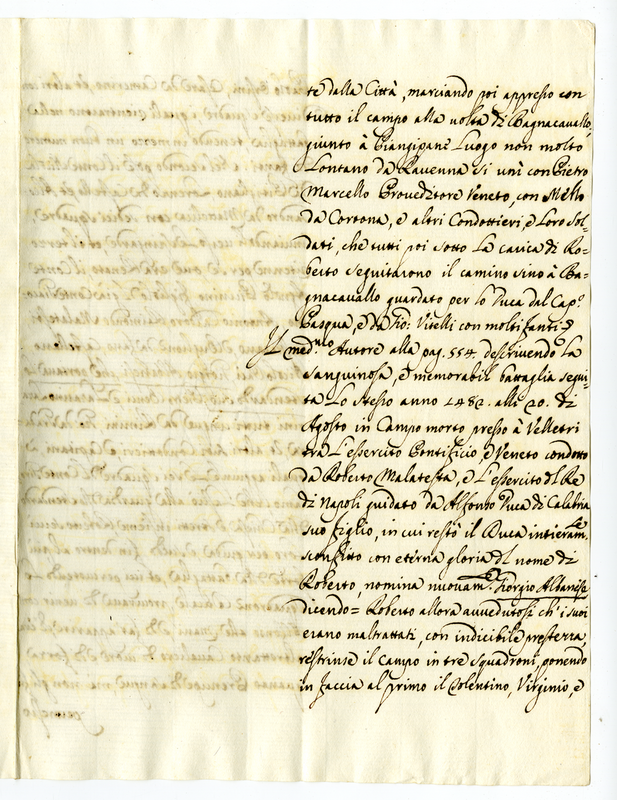 te dalla Città, marciando poi appresso con
tutto il campo alla volta di Bagnacavallo,
giunto à Piangipane Luogo non molto
Lontano da Ravenna si unì con Pietro
Marcello Proveditore Veneto, con Mello
da Cortona, e altri Condottieri, e Loro Sol=
dati, che tutti poi sotto La carica di Ro=
berto seguitarono il camino sino à Ba=
gnacavallo guardato per lo Duca dal Cap.º
Pasqua, e da Gio: Vitelli con molti fanti. e
Il med.mo Autore alla pag. 554. descrivendo La
sanguinosa, e memorabil battaglia segui=
ta Lo stesso anno 1482. alli 20. di
Agosto in Campo morto presso à Velletri
tra L'essercito Pontificio, e Veneto condotto
da Roberto Malatesta, e L'essercito del Re
di Napoli guidato da Alfonso Duca di Calabria
suo figlio, in cui restò il Duca intieram.te
sconfitto con eterna gloria del nome di
Roberto, nomina nuovam.te Giorgio Albanese
dicendo= Roberto allora avvedutosi ch' i suoi
erano maltrattati, con indicibile prestezza
restrinse il campo in tre squadroni, ponendo
in faccia al primo il Tolentino, Virginio, e